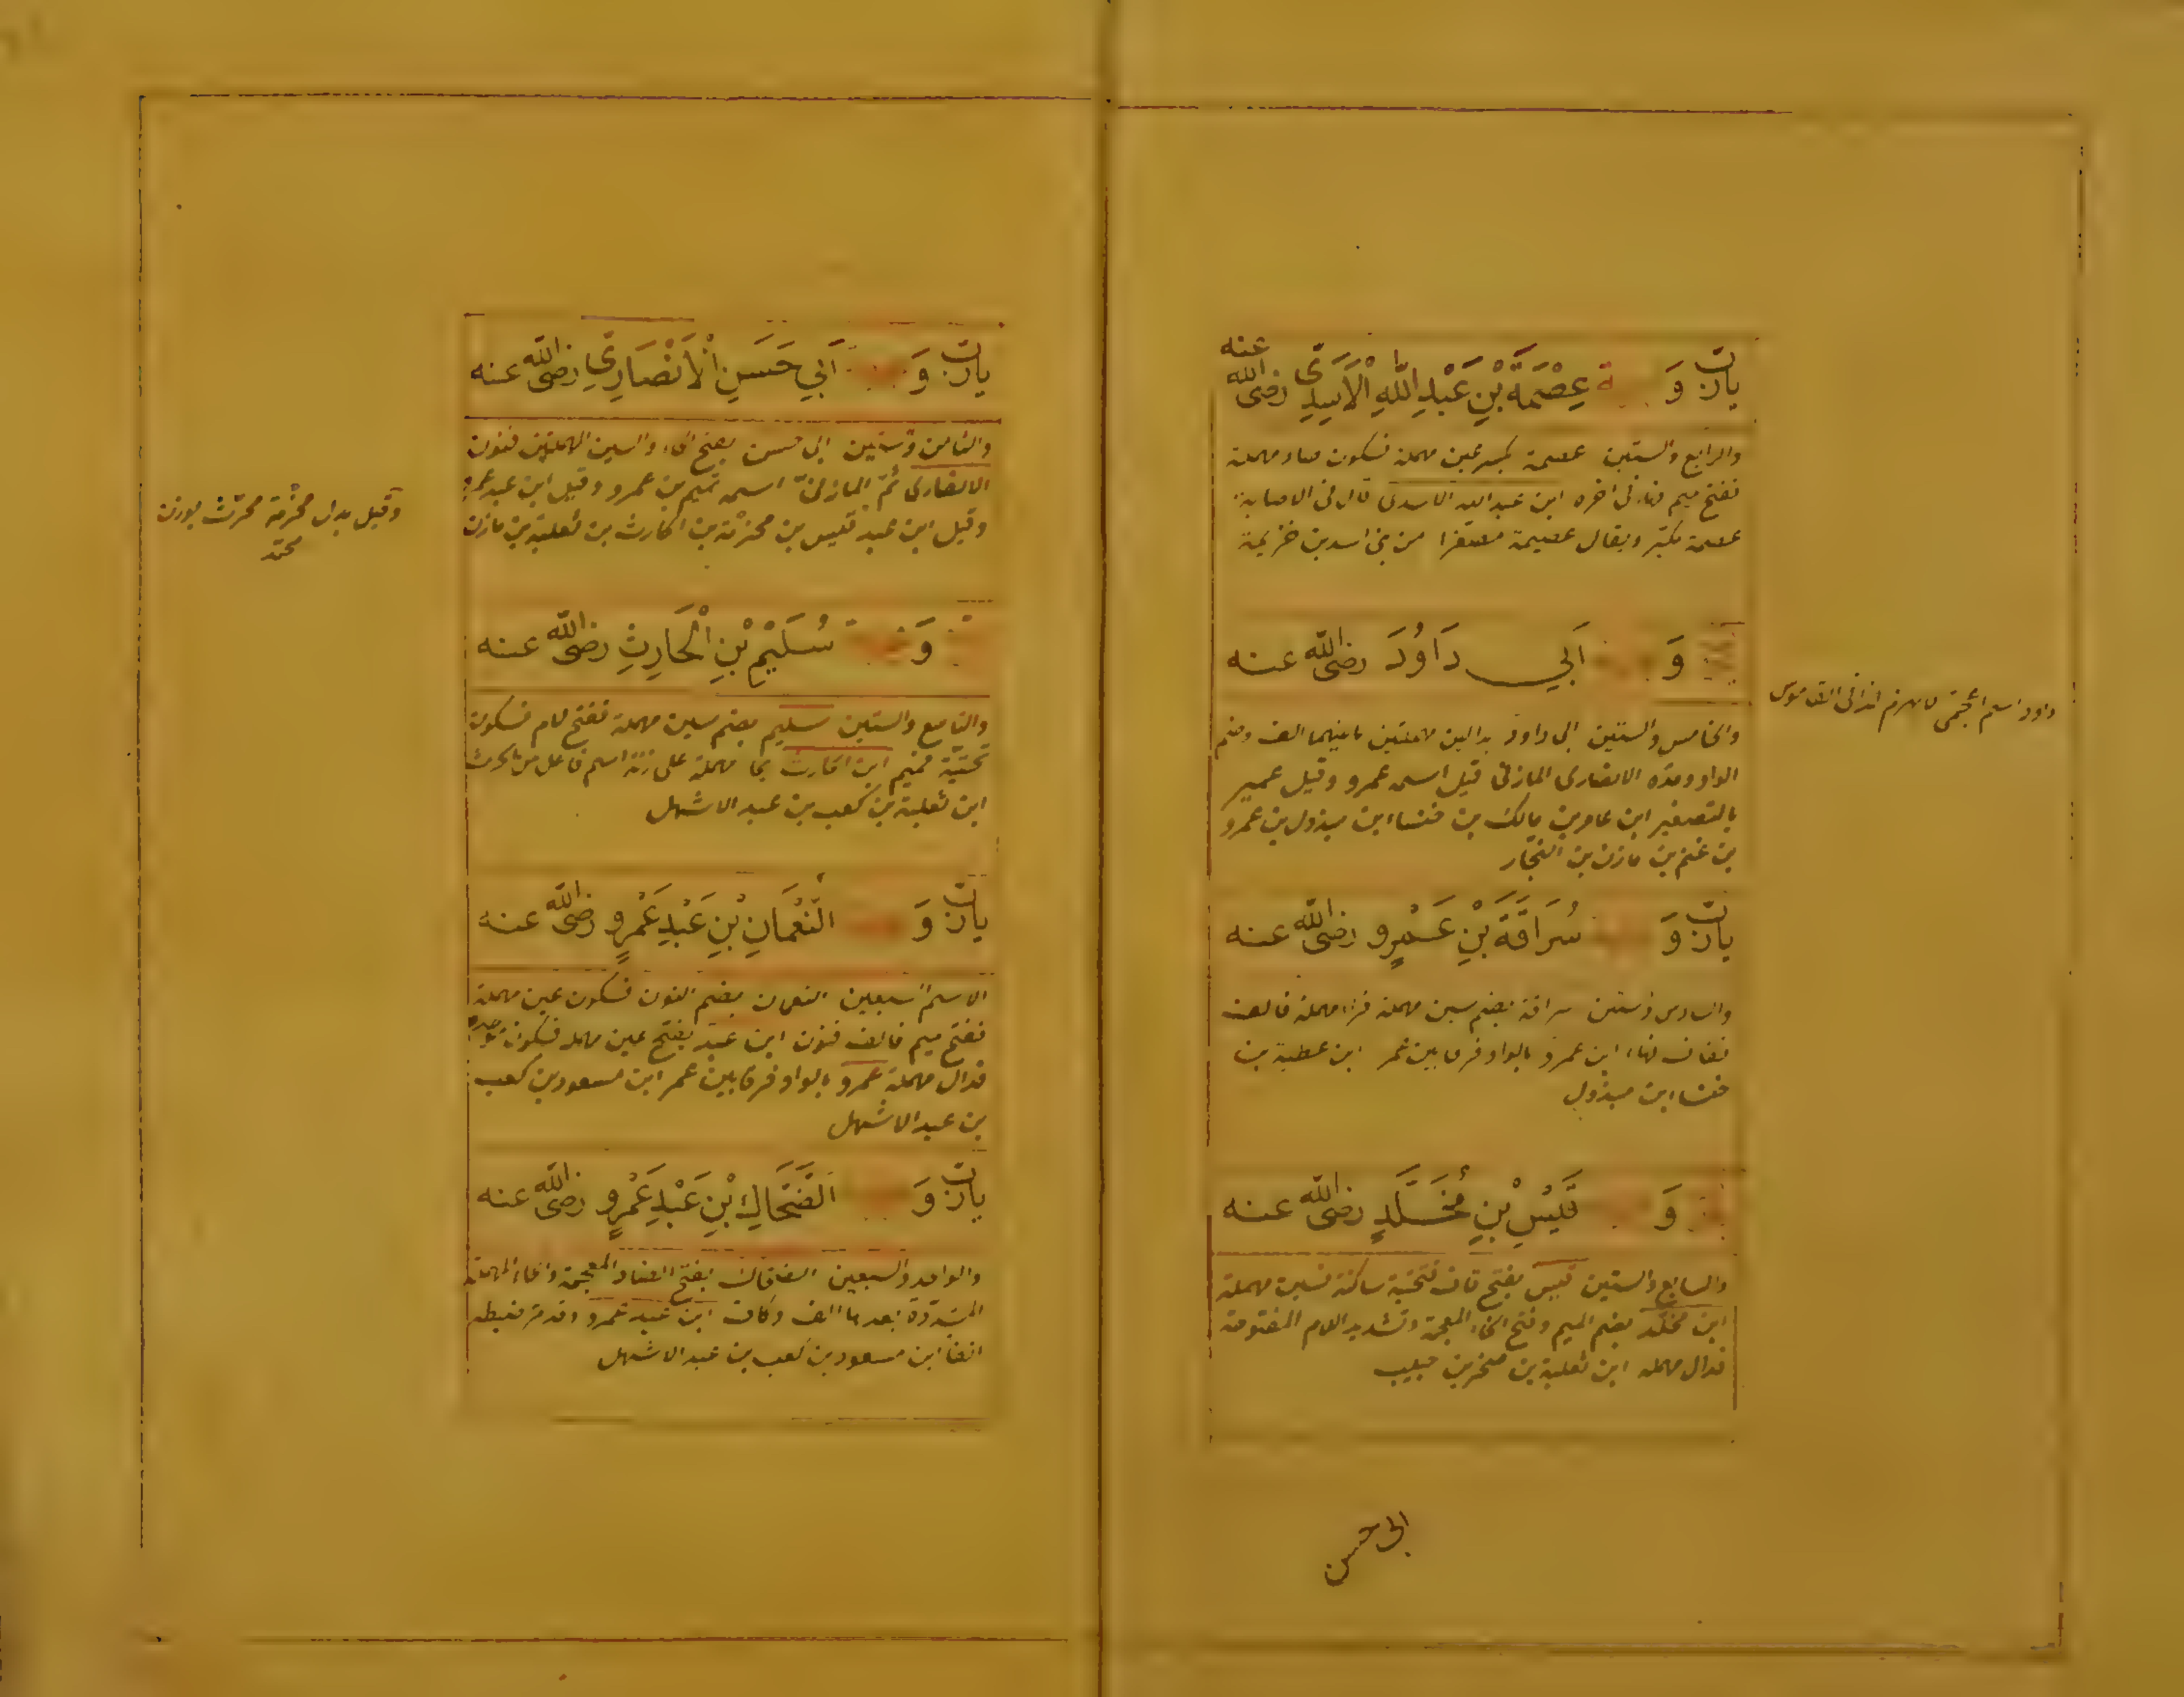 يا رب وَ عِصْمَةَ بْنِ عَبْدِ اللهِ الْأَسَدِىِّ رضى الله عنه
والرابع والستين عصمة بكسر عين مهملة فسكون صاد مهملة
ففتح ميم فهاء فى اخره ابن عبد الله الاسدى قال فى الاصابة
عصمة مكبر ويقال عصيمة مصغرا من بنى اسد بن خزيمة
وَ اَبِي دَاوُدَ رضى الله عنه
داود اسم اعجمى لا يهمز انتهى القاموس
والخامس والستين ابى داود بدالين مهملتين ما بينهما الف وضم
الواو ومده الانصارى المازنى قيل اسمه عمرو وقيل عمير
بالتصغير ابن عامر بن مالك بن خنساء ابن مبذول بن عمرو
بن غنم بن مازن بن النجار
يا رب وَ سُرَاقَةَ بْنِ عَمْرٍو رضى الله عنه
والسادس وستين سراقة بضم سين مهملة فراء مهملة فالف
فقاف فهاء ابن عمرو بالواو فرقا بين عمر ابن عطية بن
خنساء ابن مبذول
وَ قَيْسِ بْنِ مُخَلَّدٍ رضى الله عنه
والسابع والستين قيس بفتح قاف فتحتية ساكنة فسين مهملة
ابن مخلد بضم الميم وفتح الخاء المعجمة وتشديد اللام المفتوحة
فدال مهملة ابن ثعلبة بن صخر بن حبيب
ابى حسن
يا رب وَ اَبِي حَسَنِ الْاَنْصَارِيِّ رضى الله عنه
والثامن وستين ابى حسن بفتح الحاء والسين المهملتين فنون
الانصارى ثم المازنى اسمه تميم بن عمرو وقيل ابن عبد عمرو
وقيل ابن عبد قيس بن مخرمة بن الحارث بن ثعلبة بن مازن
وقيل بدل مخرمة محرث بوزن
محمد
وَ سُلَيْمِ بْنِ الْحَارِثِ رضى الله عنه
والتاسع والستين سليم بضم سين مهملة ففتح لام فسكون
تحتية فميم ابن الحارث بحاء مهملة على زنة اسم فاعل من الحرث
ابن ثعلبة بن كعب بن عبد الاشهل
يا رب وَ النُّعْمَانِ بْنِ عَبْدِ عَمْرٍو رضى الله عنه
الاسم السبعين النعمان بضم النون فسكون عين مهملة
ففتح ميم فالف فنون ابن عبد بفتح عين مهملة فسكون موحدة
فدال مهملة عمرو بالواو فرقا بين عمر ابن مسعود بن كعب
بن عبد الاشهل
يا رب وَ الضَّحَّاكِ بْنِ عَبْدِ عَمْرٍو رضى الله عنه
والواحد والسبعين الضحاك بفتح الضاد المعجمة والحاء المهملة
المشددة بعدها الف وكاف ابن عبد عمرو وقد مر ضبطه
انفا ابن مسعود بن كعب بن عبد الاشهل